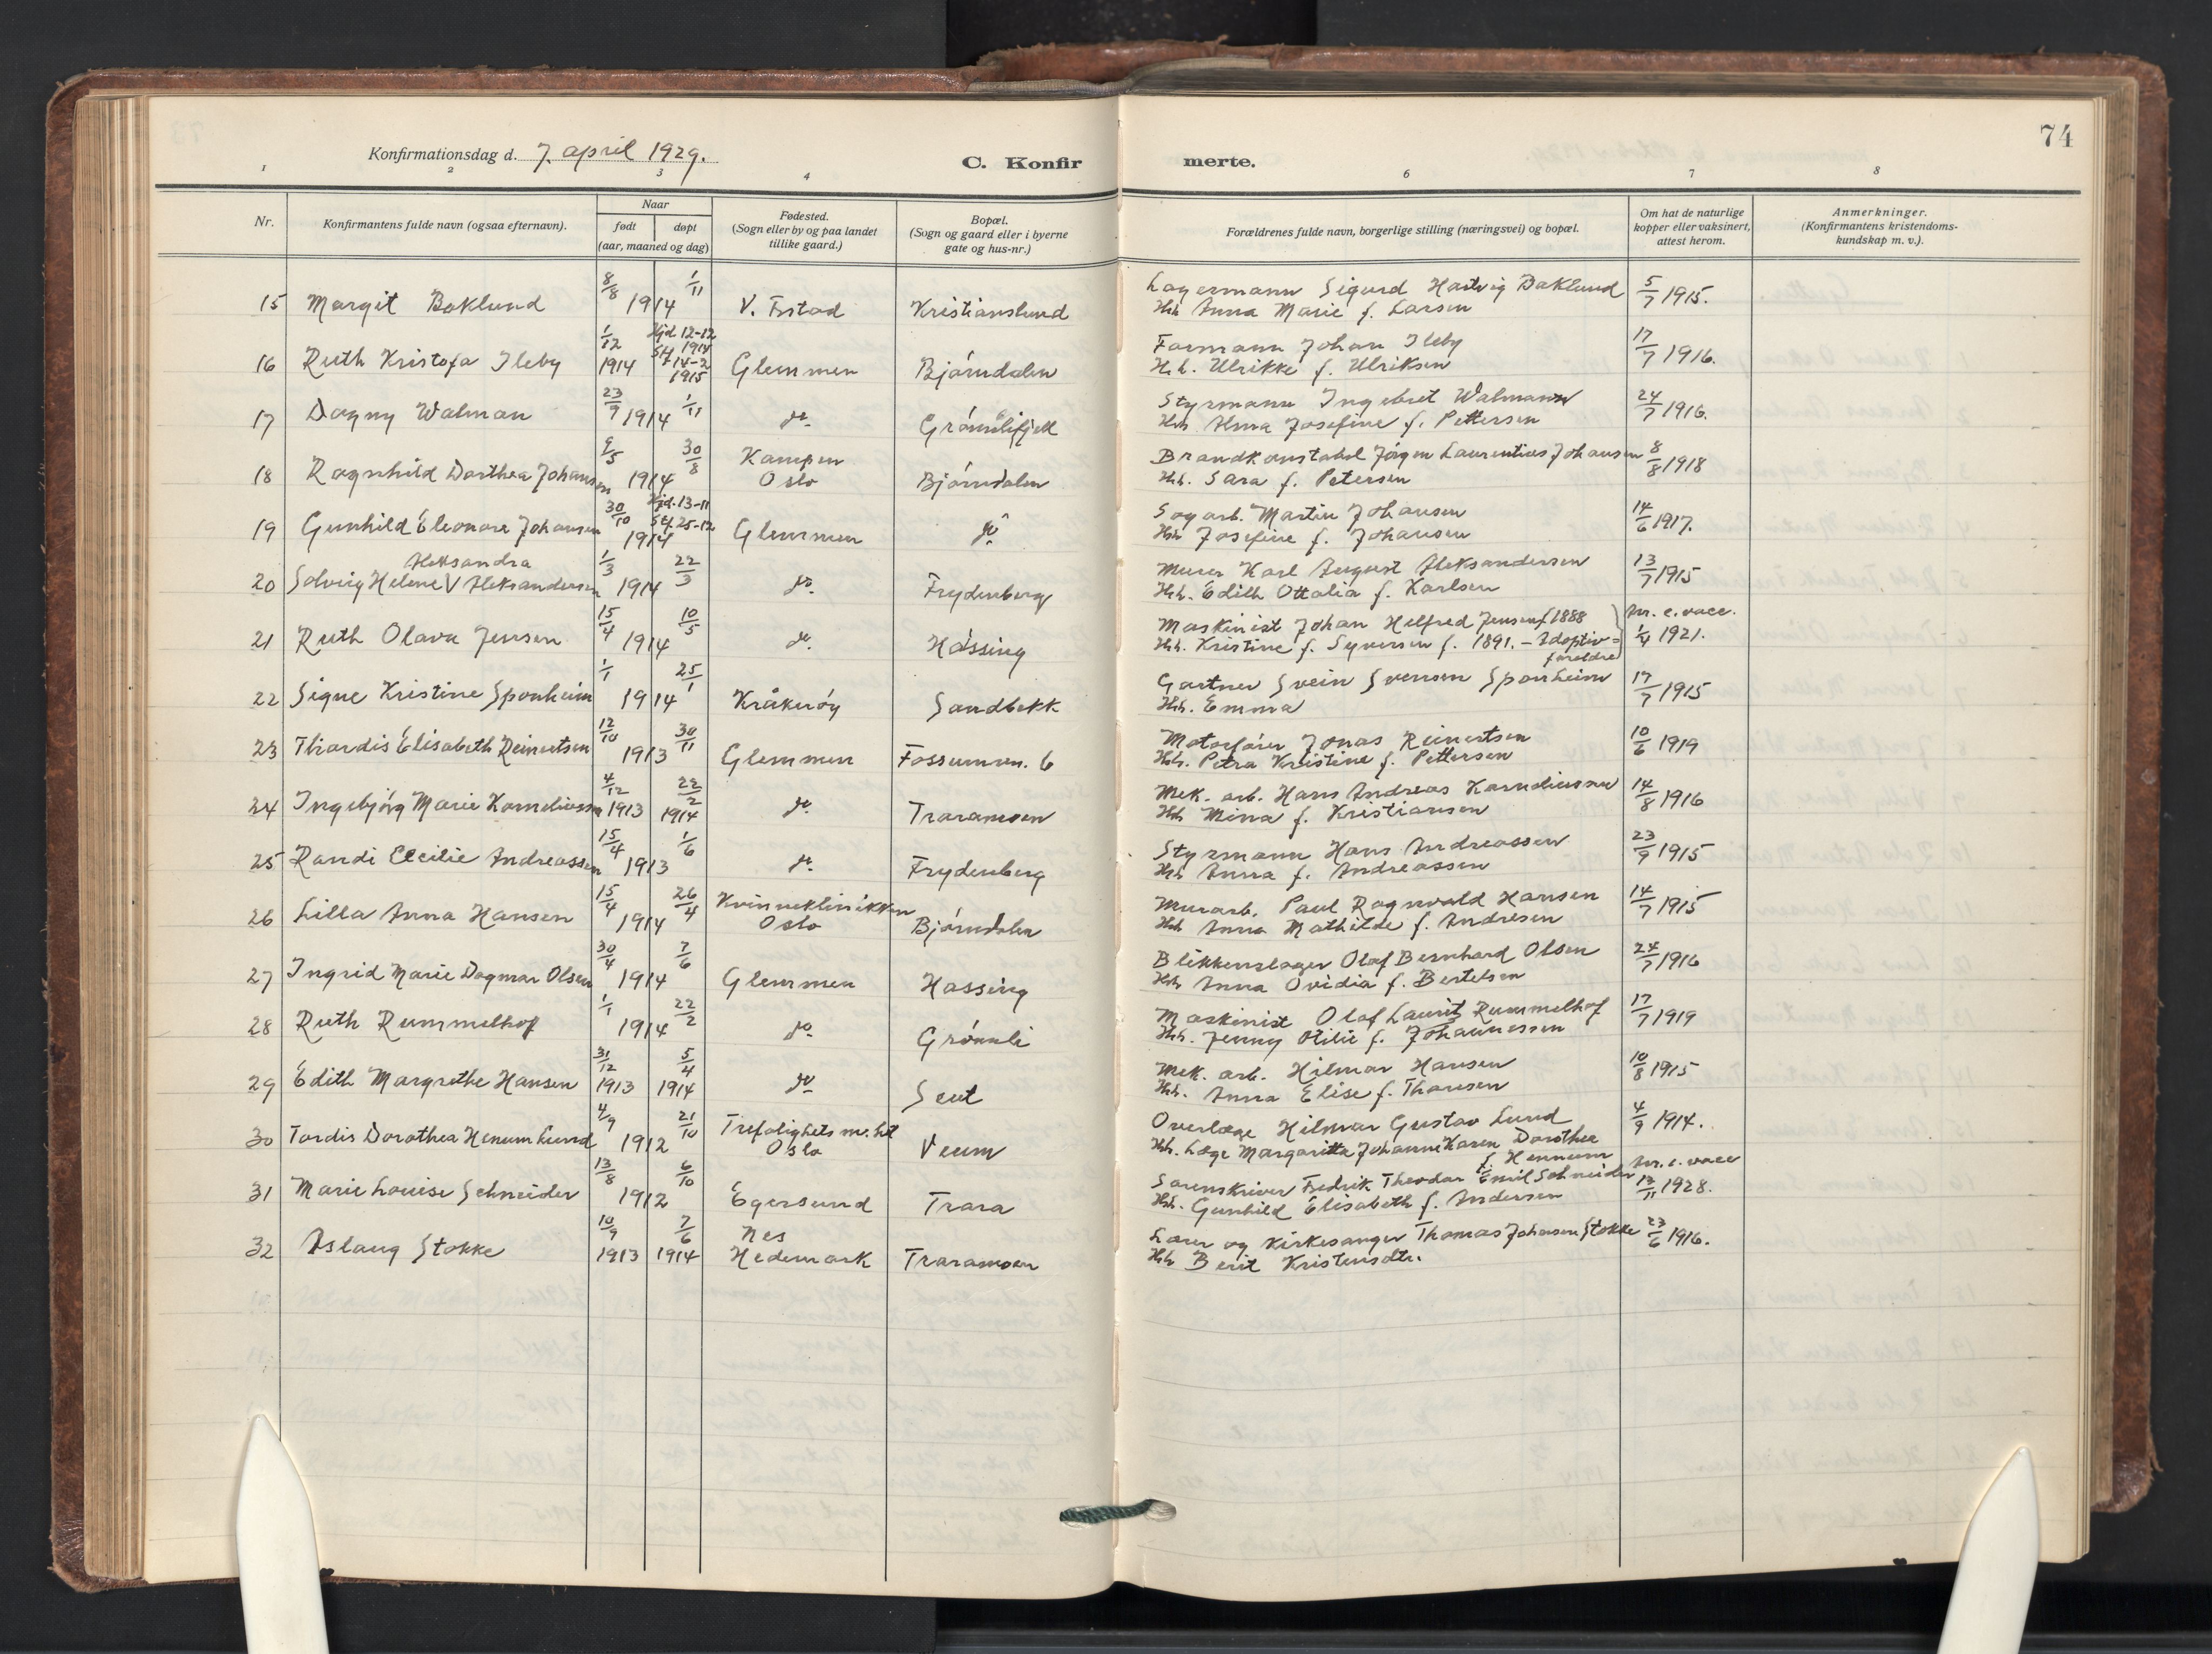 74
Konfirmationsdag d. 7. april 1929.
C. Konfirmerte.
1 2 3 4 6 7 8
Nr.
Konfirmantens fulde navn (ogsaa efternavn).
Naar
født døpt
(aar, maaned og dag)
Fødested.
(Sogn eller by og paa landet
tillike gaard.)
Bopæl.
(Sogn og gaard eller i byerne
gate og hus-nr.)
Forældrenes fulde navn, borgerlige stilling (næringsvei) og bopæl.
Om hat de naturlige
kopper eller vaksinert,
attest herom.
Anmerkninger.
(Konfirmantens kristendoms-
kundskap m. v.).
15 Margit Baklund 8/8 1914 1/11 V. Fstad Kristianslund Lagermann Sigurd Hartvig Baklund 5/7 1915.
Hh. Anna Marie f. Larsen
16 Ruth Kristofa Ileby 1/12 1914 Hjd. 12-12 1914 Stf. 14-2 1915 Glemmen Bjørndalen Formann Johan Ileby 17/7 1916.
H.h. Ulrikke f. Ulriksen
17 Dagny Walman 23/9 1914 1/11 do. Grønlifjell Styrmann Ingebret Walmann 24/7 1916.
Hh. Alma Josefine f. Pettersen
18 Ragnhild Dorthea Johansen 9/5 1914 30/8 Kampen Oslo Bjørndalen Brandkonstabel Jørgen Laurentius Johansen 8/8 1918
Hh. Sara f. Petersen
19 Gunhild Eleonora Johansen 30/10 1914 Hjd. 13-11 Stf. 25-12 Glemmen do. Sagarb. Martin Johansen 14/6 1917.
Hh. Josefine f. Johansen
20 Solveig Helene V Aleksandersen Aleksandra 1/3 1914 22/3 do. Frydenberg Murer Karl August Aleksandersen 13/7 1915
Hh. Edith Ottalia f. Karlsen
21 Ruth Olava Jensen 15/4 1914 10/5 do. Hassing Maskinist Johan Helfred Jensen f 1888 Nr. e. vacc. 1/4 1921.
Hh. Kristine f. Syversen f. 1891. – Adoptiv=
foreldre
22 Signe Kristine Sponheim 1/1 1914 25/1 Kråkerøy Sandbekk Gartner Svein Svensen Sponheim 17/7 1915
Hh. Emma
23 Thordis Elisabeth Reinertsen 12/10 1913 30/11 Glemmen Fossumvn. 6 Motorfører Jonas Reinertsen 10/6 1919
Hh. Petra Kristine f. Pettersen
24 Ingebjørg Marie Korneliussen 4/12 1913 22/2 1914 do. Traramoen Mek. arb. Hans Andreas Korneliussen 14/8 1916
Hh Mina f. Kristiansen
25 Randi Cecilie Andreassen 15/4 1913 1/6 do. Frydenberg Styrmann Hans Andreassen 23/9 1915
Hh Anna f. Andreassen
26 Lilla Anna Hansen 15/4 1914 26/4 Kvinneklinikken Oslo Bjørndalen Murarb. Paul Ragnvald Hansen 14/7 1915
Hh Anna Mathilde f. Andresen
27 Ingrid Marie Dagmar Olsen 30/4 1914 7/6 Glemmen Hassing Blikkenslager Olaf Bernhard Olsen 24/7 1916
Hh Anna Ovidia f. Bertelsen
28 Ruth Rummelhof 1/1 1914 22/2 do. Grønli Maskinist Olaf Laurits Rummelhof 17/7 1919
Hh. Jenny Otilie f. Johannessen
29 Edith Margrethe Hansen 31/12 1913 5/4 1914 do. Seut Mek. arb. Hilmar Hansen 10/8 1915
Hh. Anna Elise f. Thorsen
30 Tordis Dorothea Henum Lund 4/9 1912 21/10 Trefoligshets m. ht Oslo Veum Overlæge Hilmar Gustav Lund 4/9 1914.
Hh. Læge Margaritta Johanne Karen Dorothea
f. Hennum
31 Marie Louise Schneider 13/8 1912 6/10 Egersund Trara Sorenskriver Fredrik Theodor Emil Schneider Nr. e. vacc 13/11 1928.
Hh. Gunhild Elisabeth f. Andersen
32 Aslaug Stokke 10/9 1913 7/6 1914 Nes Hedemark Traramoen Lærer og kirkesanger Thomas Johansen Stokke 23/6 1916.
Hh Berit Kristensdtr.